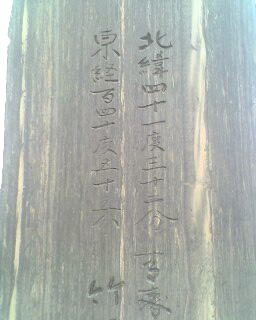 北緯四十一度三十二分
東経百四十度五十六
竹